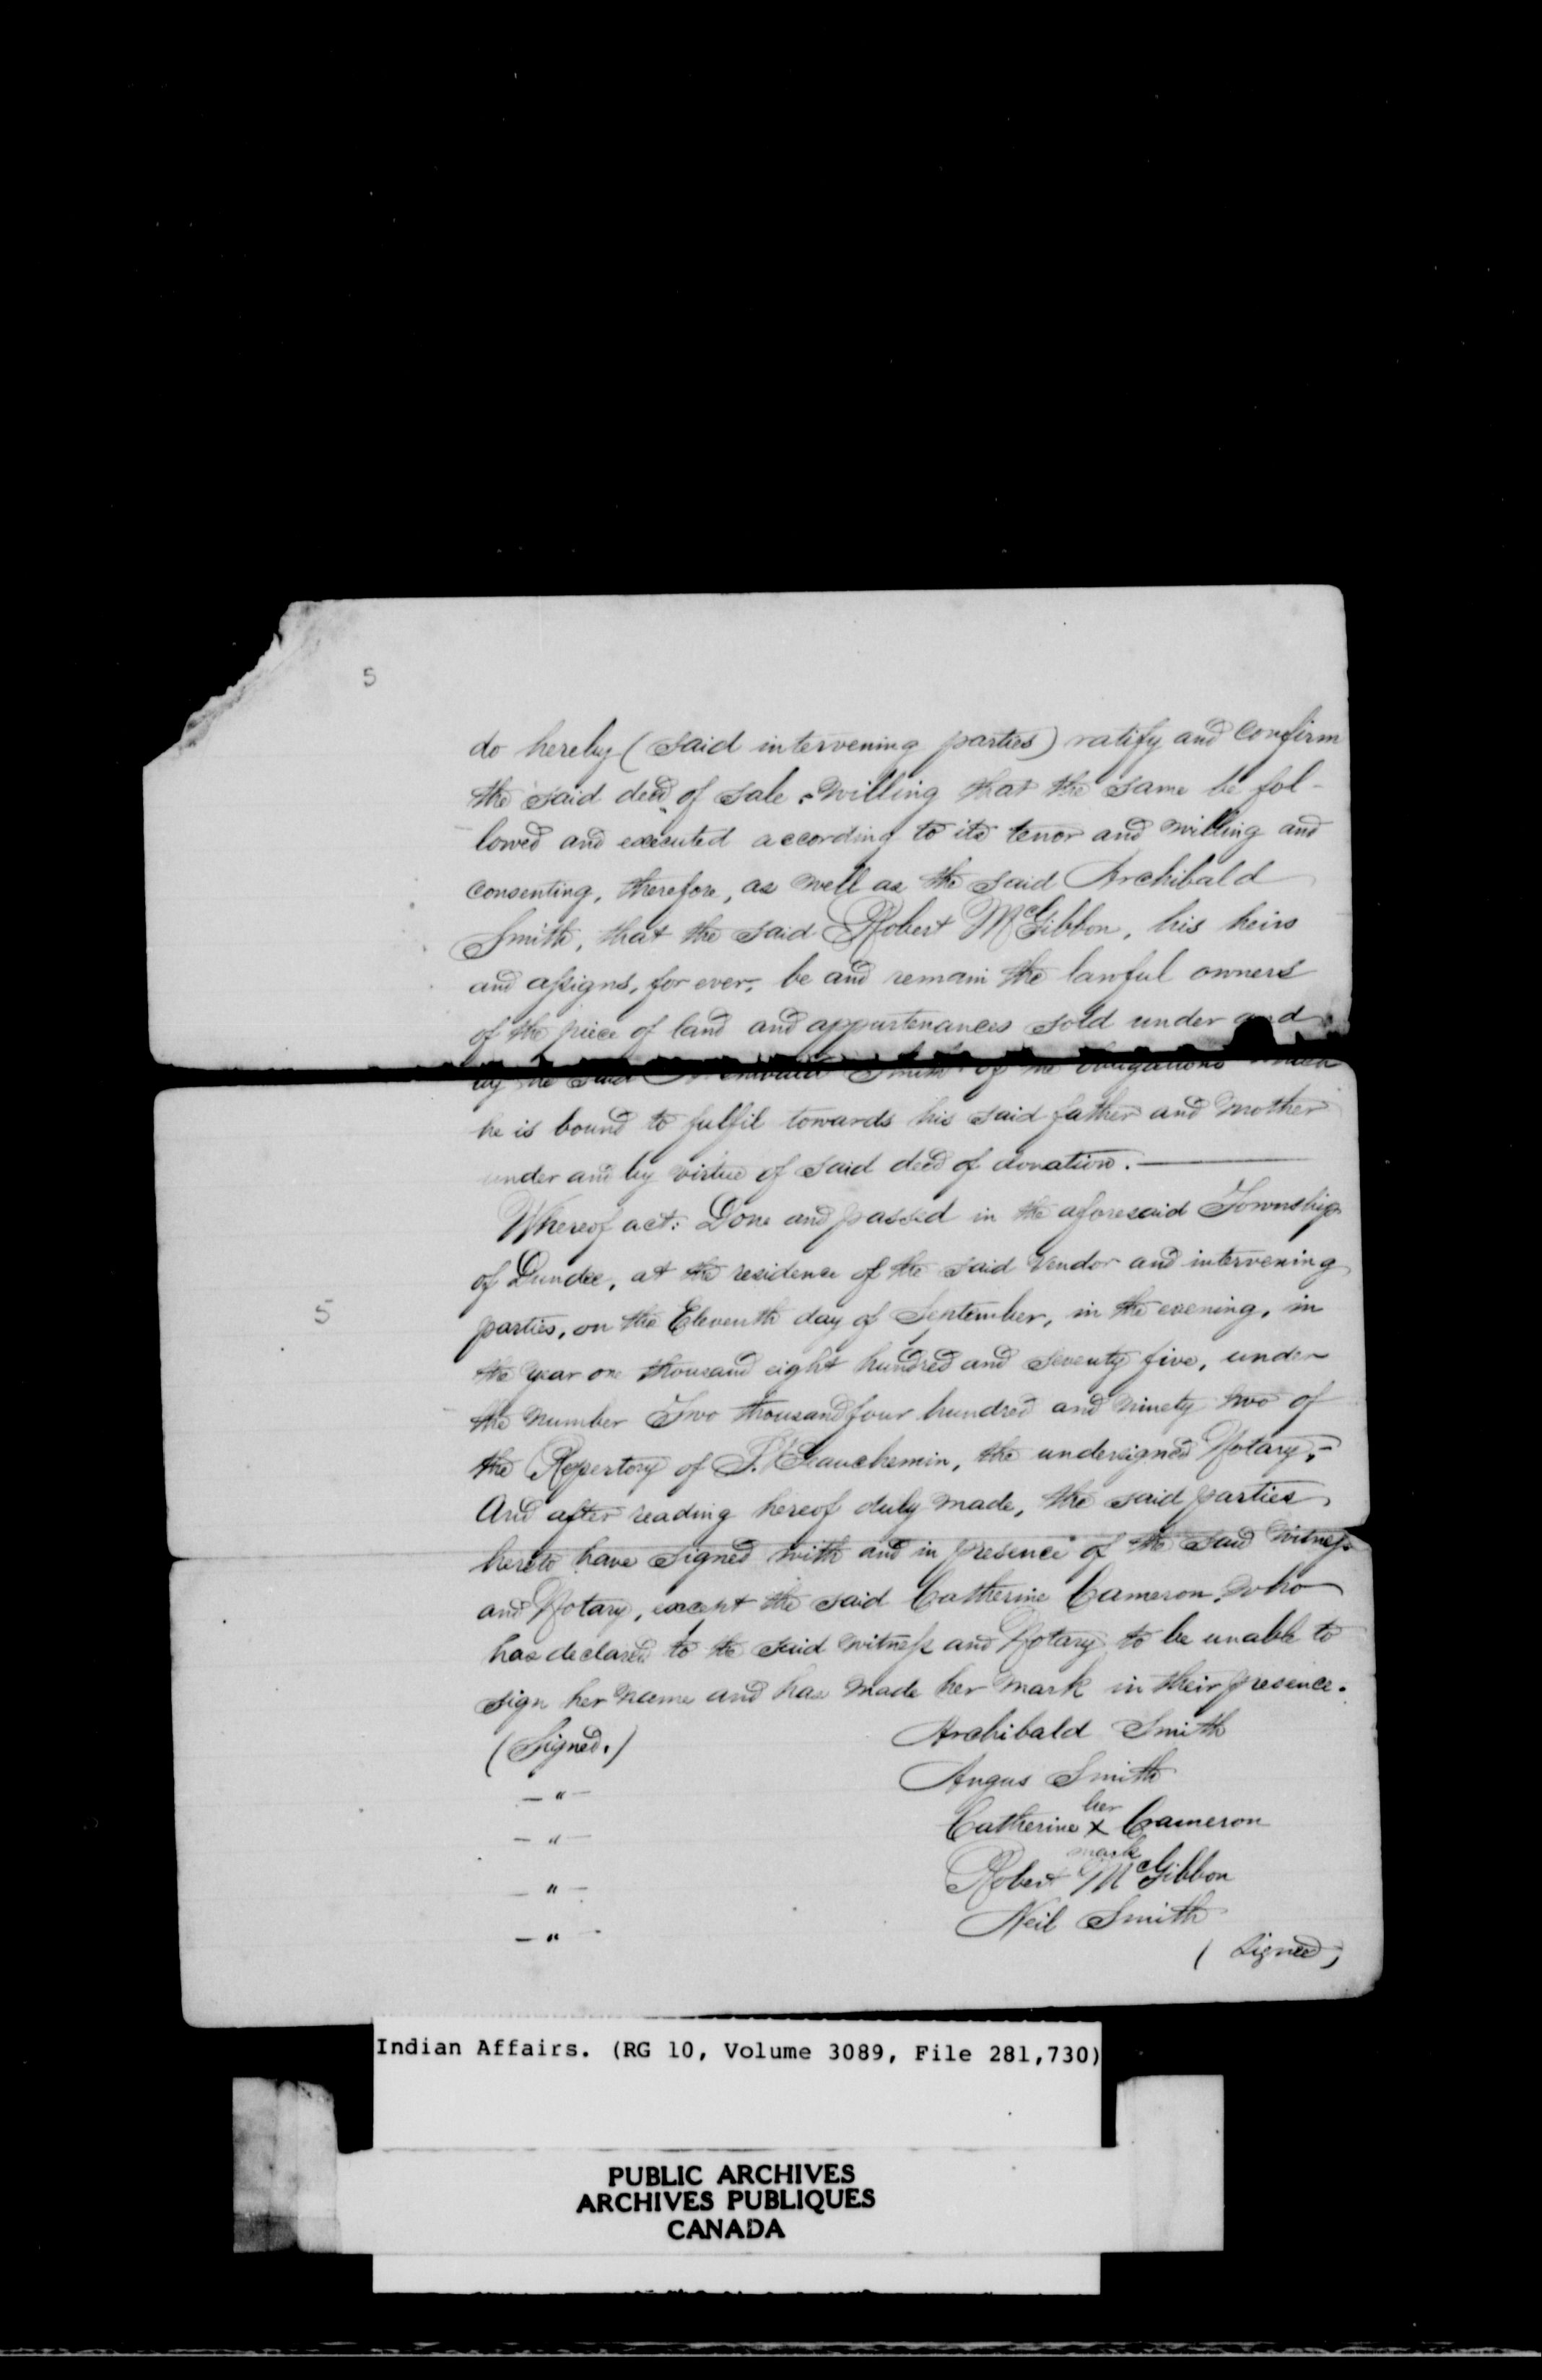 5
do hereby (said intervening parties) ratify and confirm
the said deed of sale, willing that the same be fol-
lowed and executed according to its tenor and willing and
consenting, therefore, as well as the said Archibald
Smith, that the said Robert McGibbon, his heirs
and assigns, for ever, be and remain the lawful owners
of the piece of land and appurtenances sold under and
by the said Archibald Smith of the obligations which
he is bound to fulfil towards his said father and mother
under and by virtue of said deed of donation.
Whereof act: Done and passed in the aforesaid Township
of Dundee, at the residence of the said Vendor and intervening
5
parties, on the Eleventh day of September, in the evening, in
the year one thousand eight hundred and seventy five, under
the number Two thousand four hundred and ninety two of
the Repertory of the undersigned Notary,-
And after reading hereof duly made, the said parties
hereto have signed with and in presence of the said witness
and Notary, except the said Catherine Cameron, who
has declared to the said witness and Notary to be unable to
sign her name and has made her mark in their presence.
(Signed.) Archibald Smith
- " - Angus Smith
her
- " - Catherine x Cameron
mark
- " - Robert McGibbon
- " - Neil Smith
(Signed)
Indian Affairs. (RG 10, Volume 3089, File 281,730)
PUBLIC ARCHIVES
ARCHIVES PUBLIQUES
CANADA